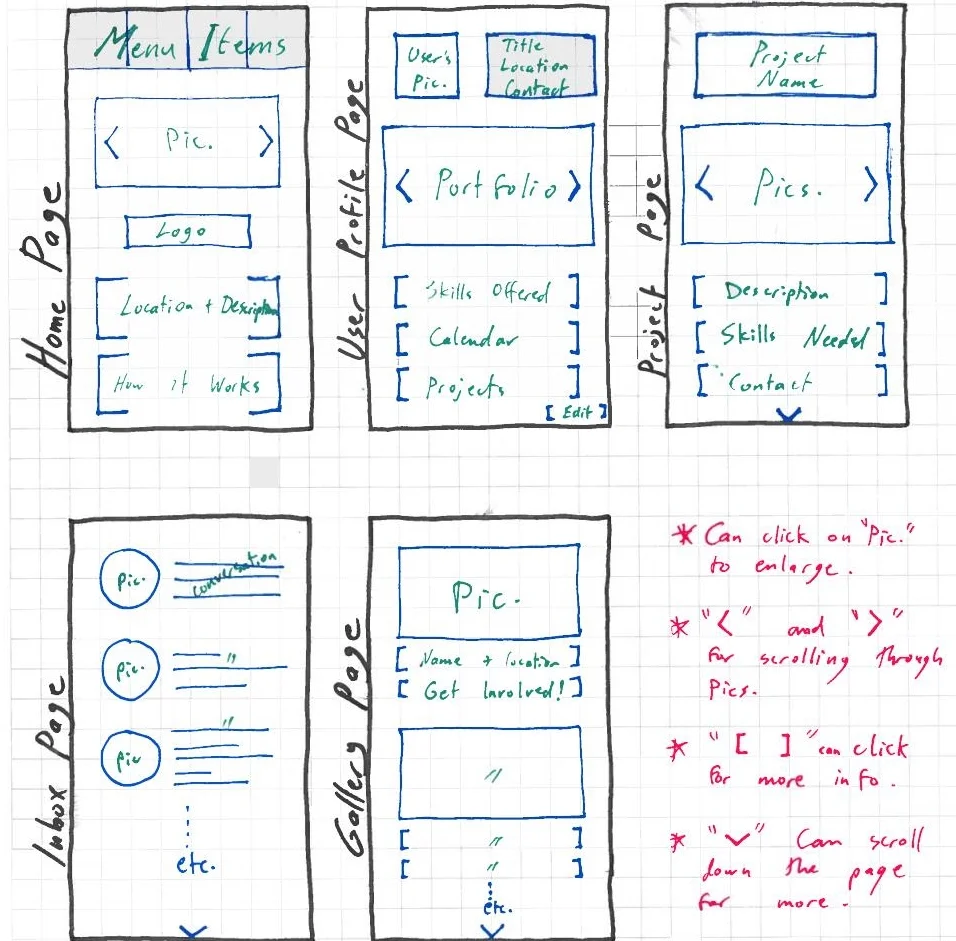 Home Page
Menu Items
< Pic. >
Logo
Location + Description
How it Works
User Profile Page
User's
Pic.
Title
Location
Contact
< Portfolio >
[ Skills Offered ]
[ Calendar ]
[ Projects ]
[ Edit ]
Project Page
Project
Name
< Pics. >
[ Description ]
[ Skills Needed ]
[ Contact ]
Inbox Page
Pic.
Conversation
Pic.
"
Pic
"
etc.
Gallery Page
Pic.
[ Name + location ]
[ Get Involved! ]
"
[ " ]
[ " ]
etc.
* Can click on "Pic."
to enlarge.
* "<" and ">"
for scrolling through
Pics.
* "[ ]" can click
for more info.
* "v" Can scroll
down the page
for more.